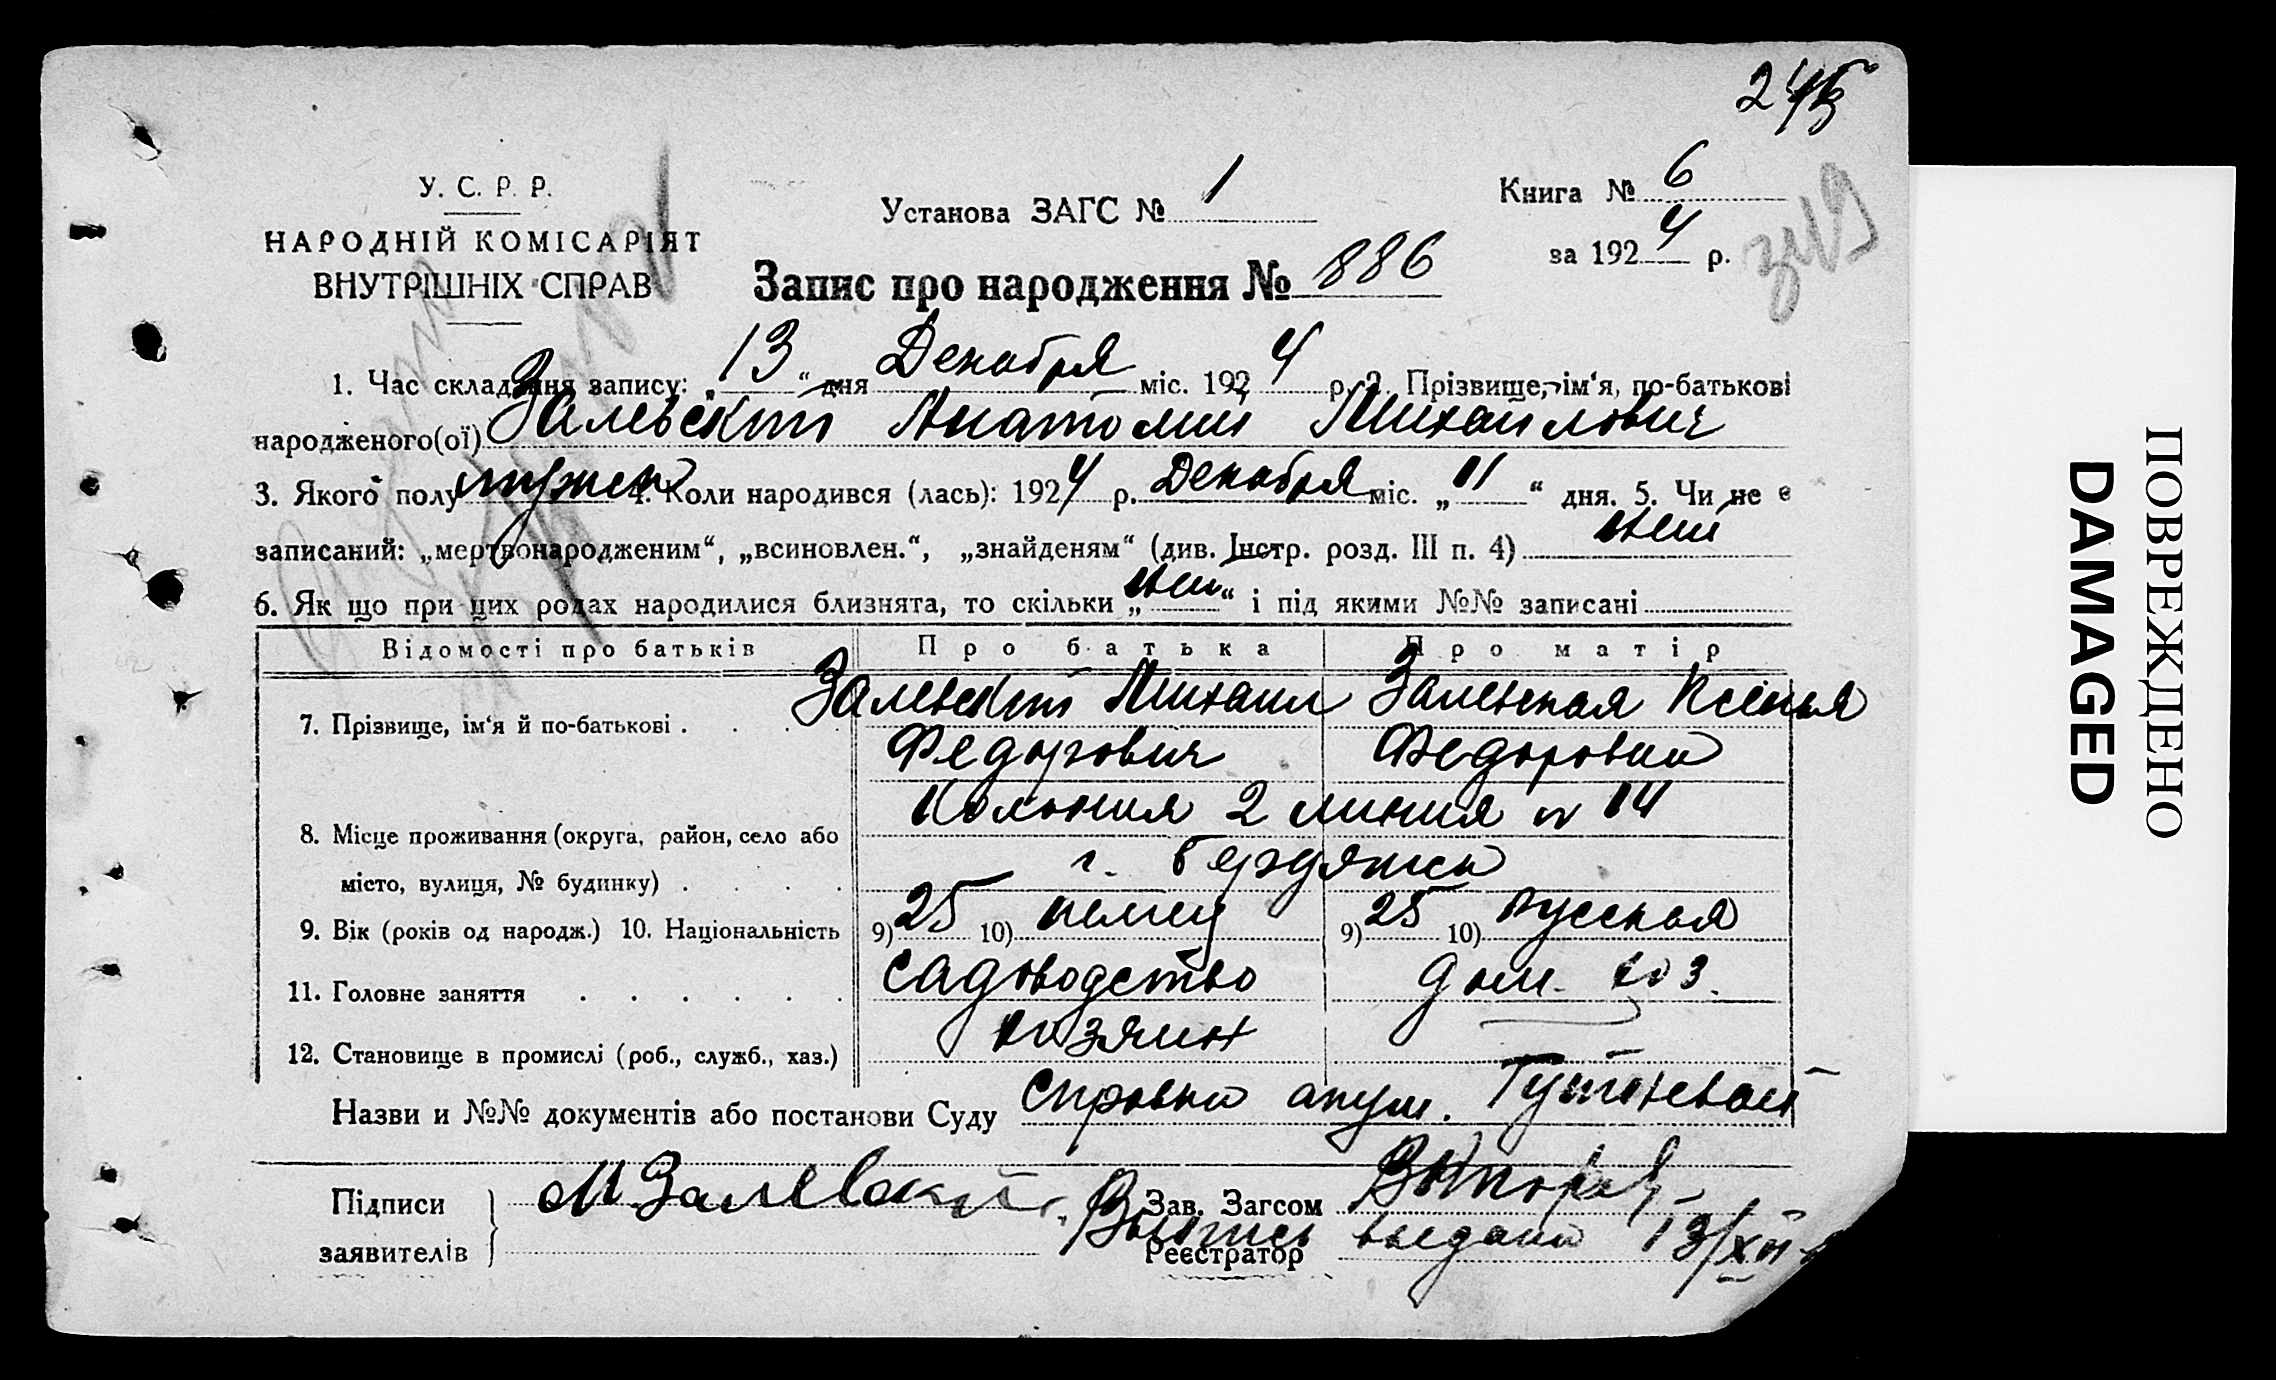 У. С. Р. Р.
НАРОДНІЙ КОМІСАРІЯТ
ВНУТРІШНІХ СПРАВ
Установа ЗАГС № 1
Книга № 6
за 1924 р.
Запис про народження № 886
1. Час складання запису: „13“ дня Декабря міс. 1924 р. 2. Прізвище, ім‘я, по-батькові
народженого(ої) Залевский Анатолий Михайлович
3. Якого полу мужск 4. Коли народився (лась): 1924 р. Декабря міс. „11“ дня. 5. Чи не є
записаний: „мертвонародженим“, „всиновлен.“, „знайденям“ (див. Інстр. розд. III п. 4) нет
6. Як що при цих родах народилися близнята, то скільки „нет“ і під якими №№ записані
Відомості про батьків Про батька Про матір
7. Прізвище, ім‘я й по-батькові . Залевский Михаил Залевская Ксенья
Федорович Федоровна
8. Місце проживання (округа, район, село або Колония 2 линия № 14
місто, вулиця, № будинку) . г. Бердянск
9. Вік (років од народж.) 10. Національність 9) 25 10) немец 9) 25 10) Русская
11. Головне заняття садоводство дом. хоз.
12. Становище в промислі (роб., служб., хаз.) хозяин
Назви и №№ документів або постанови Суду Справка акуш.
Підписи М Залевский Зав. Загсом
заявителів Реєстратор
Выпись выдана 13/XII
ПОВРЕЖДЕНО
DAMAGED